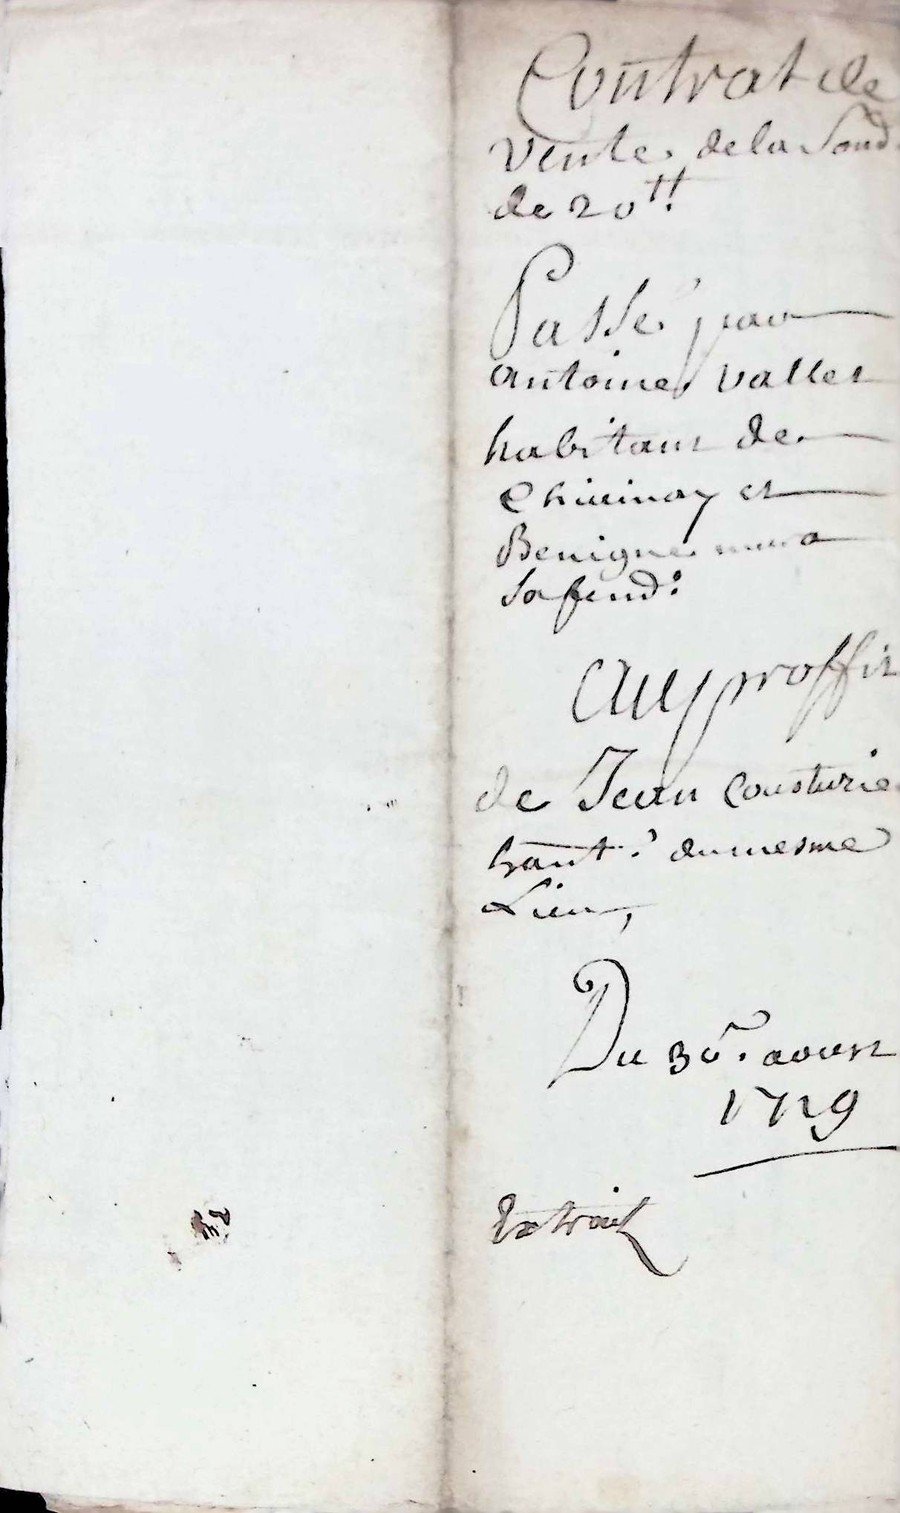 Contrat de
vente de la Som̃e
de 20 tt.
Passé par
antoine vallet
habitant de
Chivinay et
Benigne
sa fem̃e
Au proffit
de Jean Cousturie
hãnt. du mesme
Lieu,
Du 30e. aoust
1719
Extrait